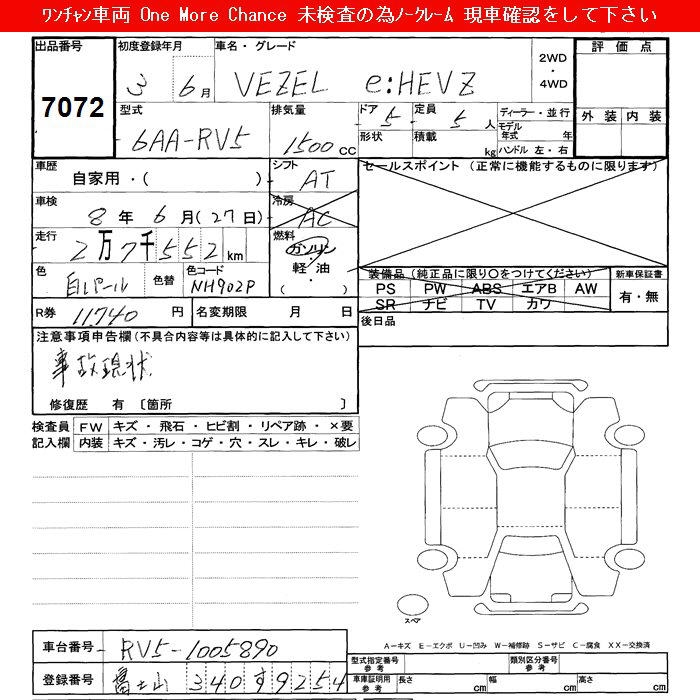 ﾜﾝﾁｬﾝ車両 One More Chance 未検査の為ﾉｰｸﾚｰﾑ 現車確認をして下さい
出品番号 初度登録年月 車名・グレード 評価点
7072 3 6月 VEZEL e:HEV Z 2WD・4WD
型式 排気量 ドア 定員 ディーラー・並行 外装 内装
6AA-RV5 1500cc 5 5人 モデル年式 年
形状 積載 kg ハンドル 左・右
車歴 シフト セールスポイント (正常に機能するものに限ります)
自家用・( ) AT
車検 冷房
8年 6月(27日) AC
走行 燃料
2万7千552km ガソリン・軽油・( )
色 色替 色コード 装備品(純正品に限り〇をつけてください) 新車保証書
白パール NH902P PS PW ABS エアB AW 有・無
SR ナビ TV カワ
R券 11740円 名変期限 月 日 後日品
注意事項申告欄(不具合内容等は具体的に記入して下さい)
事故現状
修復歴 有 〔箇所 〕
検査員 FW キズ・飛石・ヒビ割・リペア跡・×要
記入欄 内装 キズ・汚レ・コゲ・穴・スレ・キレ・破レ
スペア
A－キズ E－エクボ U－凹み W－補修跡 S－サビ C－腐食 XX－交換済
車台番号 RV5-1005890 型式指定番号 参考 類別区分番号 参考
登録番号 富士山 340 す 9254 車庫証明用 参考 長さ cm 幅 cm 高さ cm